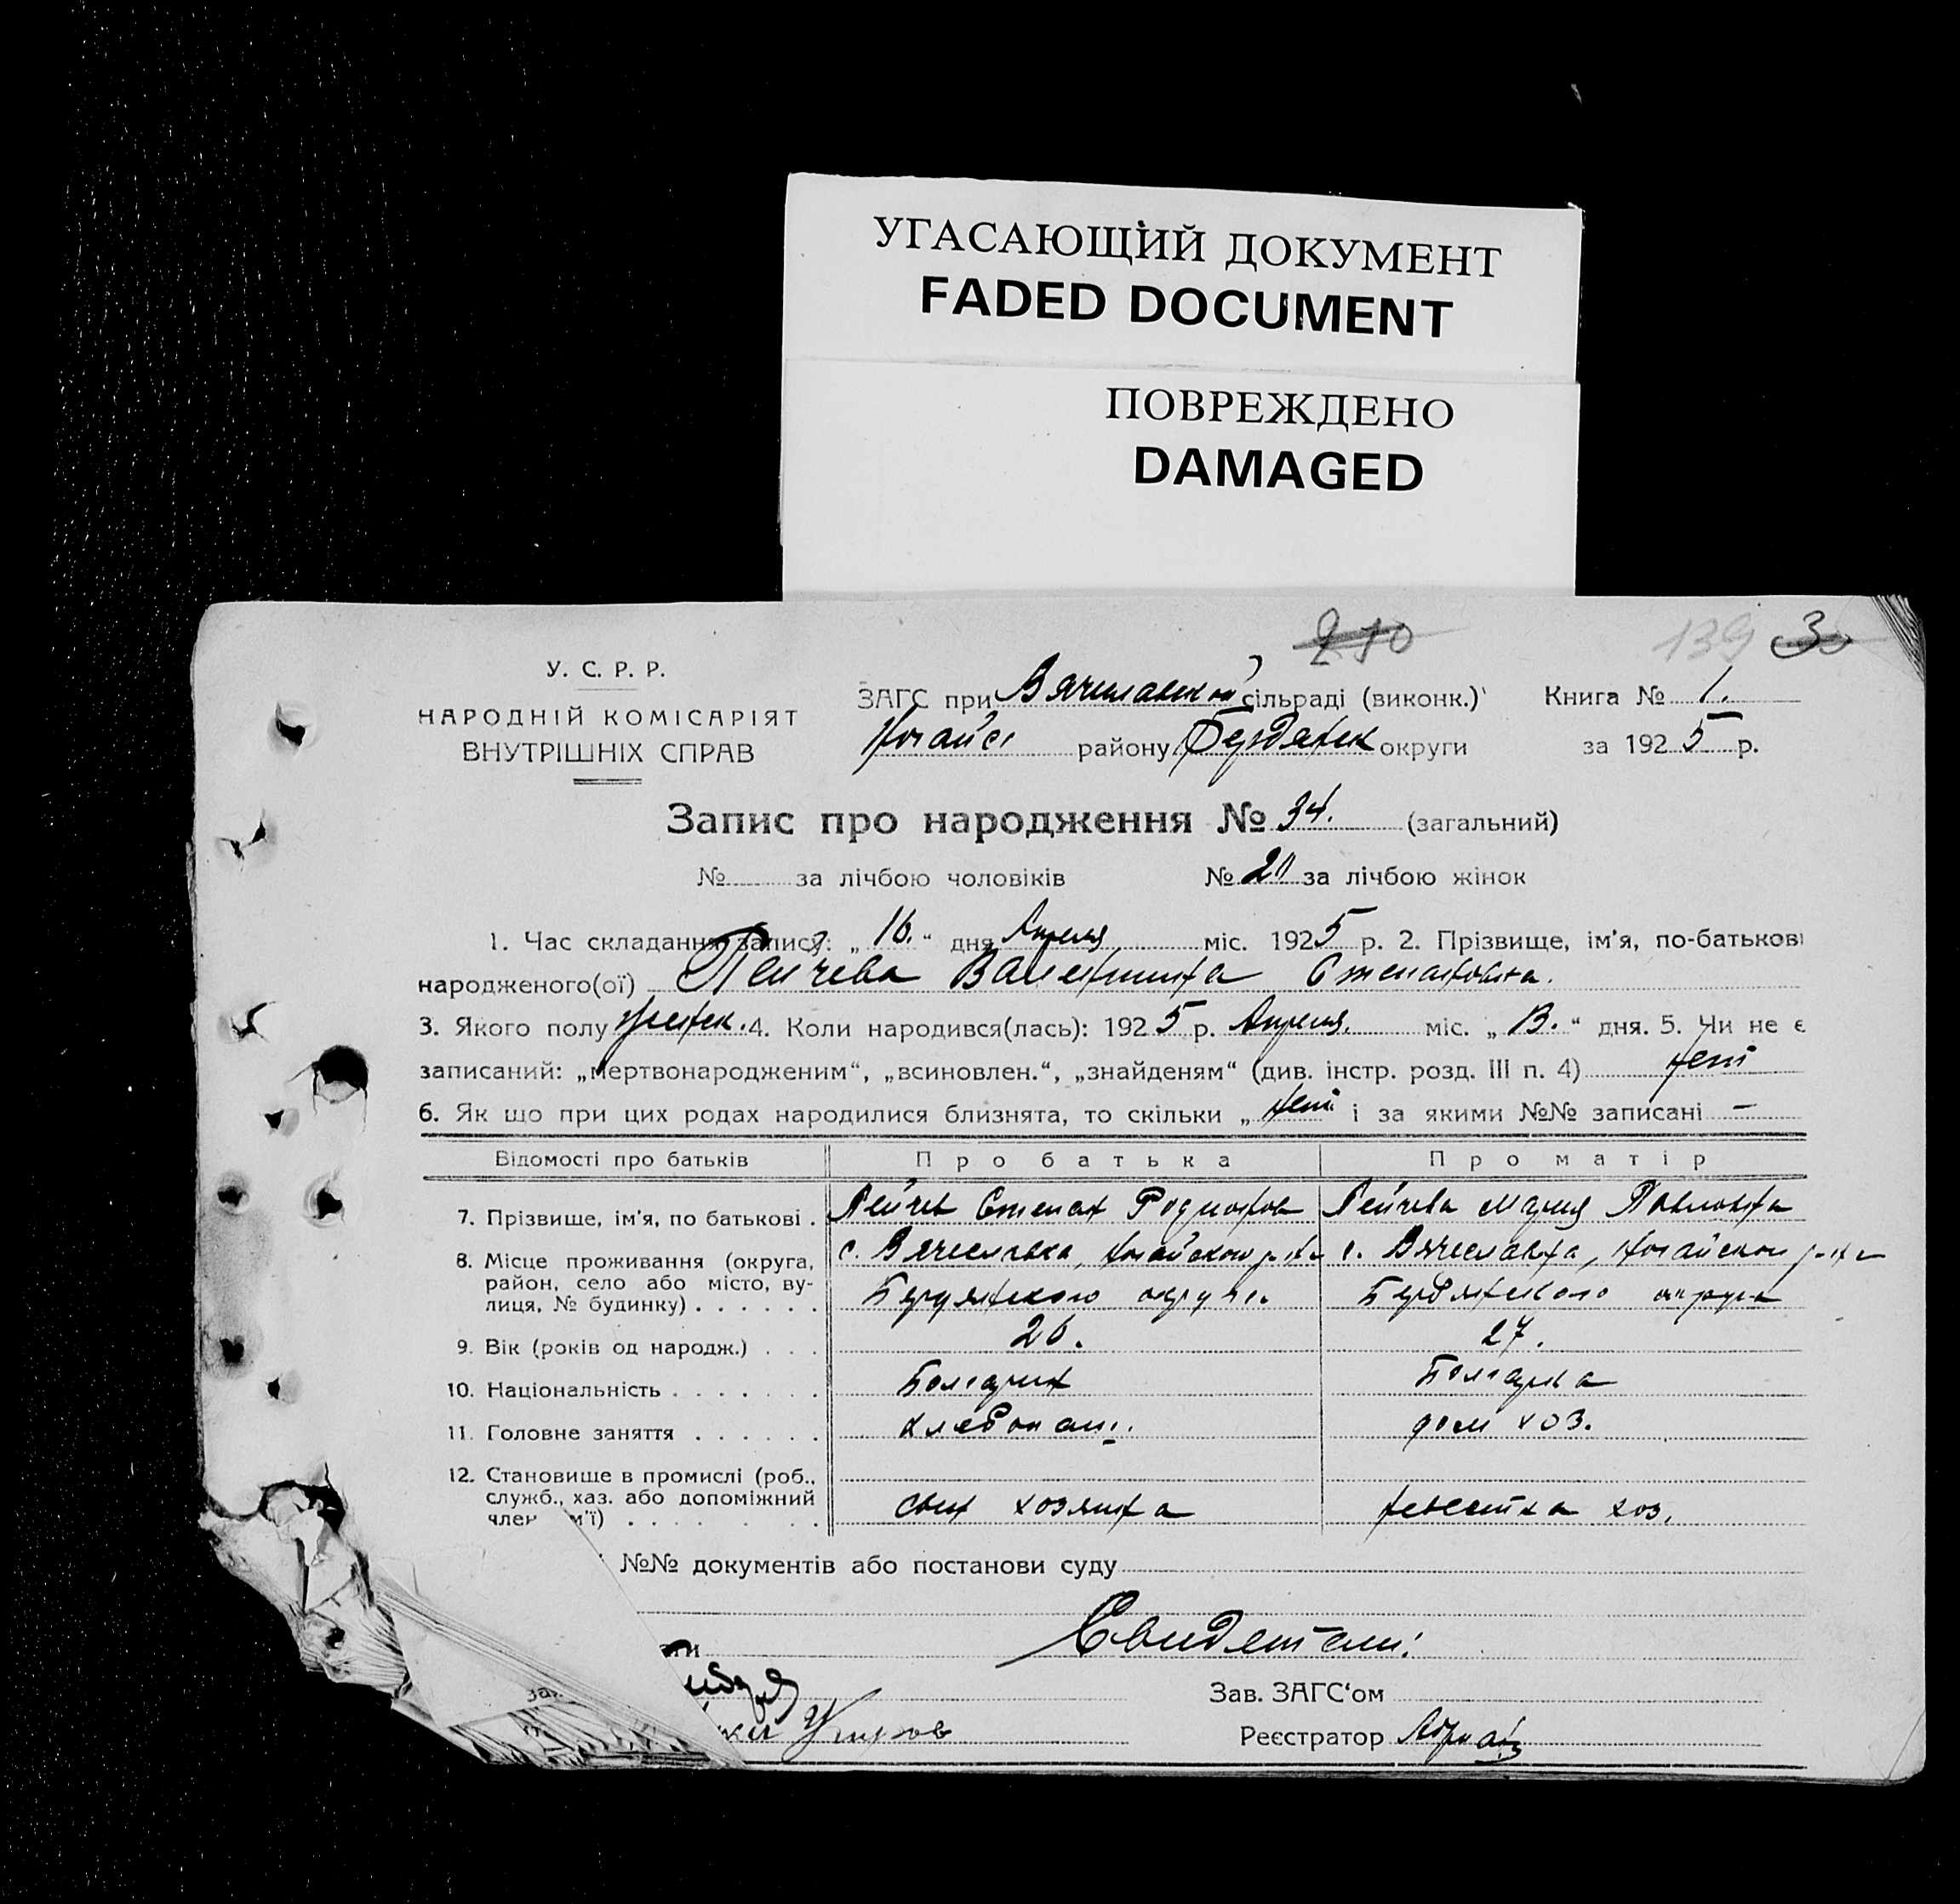 УГАСАЮЩИЙ ДОКУМЕНТ
FADED DOCUMENT
ПОВРЕЖДЕНО
DAMAGED
210
139 30
У. С. Р. Р.
НАРОДНІЙ КОМІСАРІЯТ
ВНУТРІШНІХ СПРАВ
ЗАГС при Вячеславской сільраді (виконк.) Книга № 1.
Ногайс району Бердянск округи за 1925 р.
Запис про народження № 34. (загальний)
№ за лічбою чоловіків № 20 за лічбою жінок
1. Час складання запису: „16.“ дня Апреля міс. 1925 р. 2. Прізвище, ім'я, по-батькові
народженого(ої) Пейчева Валентина Степановна.
3. Якого полу женск. 4. Коли народився(лась): 1925 р. Апреля. міс. „13.“ дня. 5. Чи не є
записаний: „мертвонародженим“, „всиновлен.“, „знайденям“ (див. інстр. розд. III п. 4) нет
6. Як що при цих родах народилися близнята, то скільки „нет і за якими №№ записані —
Відомості про батьків Про батька Про матір
7. Прізвище, ім'я, по батькові . Пейчев Степан Родионов Пейчева Мария Павловна
8. Місце проживання (округа, район, село або місто, ву-лиця, № будинку) . . . . . . с. Вячеславка, Ногайского р-на Бердянского округа. с. Вячеславка, Ногайскои р-на Бердянского округа
9. Вік (років од народж.) . . . 26. 27.
10. Національність . . . . . . . Болгарин Болгарка
11. Головне заняття . . . . . . хлебопаш. дом хоз.
12. Становище в промислі (роб., служб., хаз. або допоміжний член м'ї) . . . . сын хозяина невестка хоз.
№№ документів або постанови суду
Свидетели:
Зав. ЗАГС'ом
Реєстратор